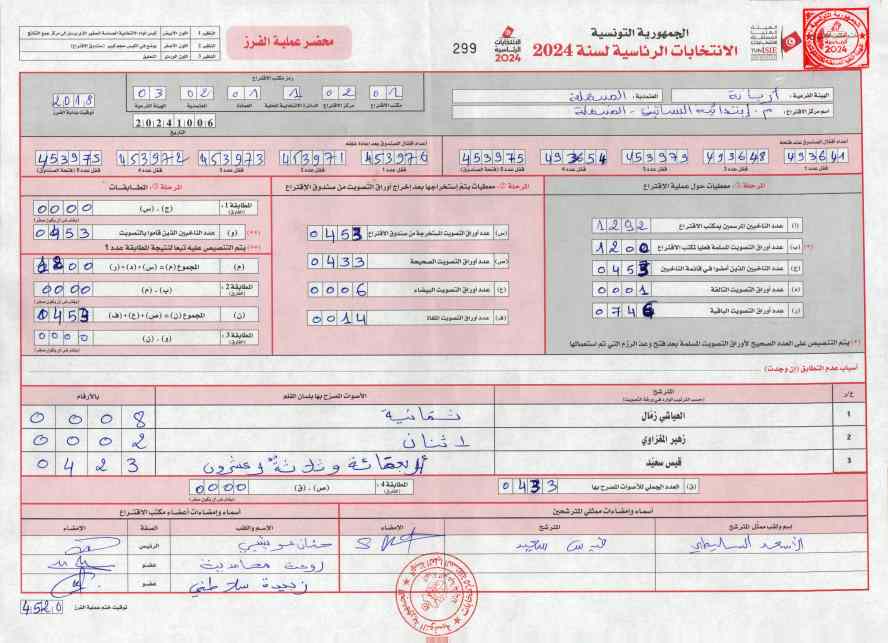 الجمهورية التونسية
الانتخابات الرئاسية لسنة 2024
299
محضر عملية الفرز
الهيئة الفرعية: أريانة
المعتمدية: المنيهلة
اسم مركز الاقتراع: م. إبتدائية البساتين - المنيهلة
رمز مكتب الاقتراع
03 02 01 1 02 01
الهيئة الفرعية المعتمدية العمادة الدائرة الانتخابية المحلية مركز الاقتراع مكتب الاقتراع
2018
توقيت بداية الفرز
20241006
التاريخ
أعداد أقفال الصندوق عند فتحه
493641 493648 453979 493654 453975
قفل عدد 1 قفل عدد 2 قفل عدد 3 قفل عدد 4 قفل عدد 5 (فتحة الصندوق)
أعداد أقفال الصندوق بعد إعادة غلقه
453976 453971 453973 453972 453975
قفل عدد 1 قفل عدد 2 قفل عدد 3 قفل عدد 4 قفل عدد 5 (فتحة الصندوق)
المرحلة 1: معطيات حول عملية الاقتراع
(أ) عدد الناخبين المرسمين بمكتب الاقتراع 1292
(ب) عدد أوراق التصويت المسلمة فعليا لمكتب الاقتراع 1200
(ج) عدد الناخبين الذين أمضوا في قائمة الناخبين 0453
(د) عدد أوراق التصويت التالفة 0001
(ر) عدد أوراق التصويت الباقية 0746
(*) يتم التنصيص على العدد الصحيح لأوراق التصويت المسلمة بعد فتح وعد الرزم التي تم استعمالها
المرحلة 2: معطيات يتم استخراجها بعد إخراج أوراق التصويت من صندوق الاقتراع
(س) عدد أوراق التصويت المستخرجة من صندوق الاقتراع 0453
(ص) عدد أوراق التصويت الصحيحة 0433
(ع) عدد أوراق التصويت البيضاء 0006
(ف) عدد أوراق التصويت الملغاة 0014
المرحلة 3: المطابقات
المطابقة 1: (الفارق) (ج) - (س) 0000
(و) عدد الناخبين الذين قاموا بالتصويت 0453
(**) يتم التنصيص عليه تبعا لنتيجة المطابقة عدد 1
(م) المجموع (م) = (س) + (د) + (ر) 1200
المطابقة 2: (الفارق) (ب) - (م) 0000
(ن) المجموع (ن) = (ص) + (ع) + (ف) 0453
المطابقة 3: (الفارق) (و) - (ن) 0000
أسباب عدم التطابق (إن وجدت)
ع/ر المترشح الأصوات المصرح بها بلسان القلم بالأرقام
(حسب الترتيب الوارد في ورقة التصويت)
1 العياشي زمّال ثمانية 0008
2 زهير المغزاوي اثنان 0002
3 قيس سعيّد أربعمائة وثلاثة وعشرون 0423
(ق) العدد الجملي للأصوات المصرح بها 0433
المطابقة 4: (الفارق) (ص) - (ق) 0000
أسماء وإمضاءات ممثلي المترشحين
إسم ولقب ممثل المترشح المترشح الإمضاء
قيس سعيد
أسماء وإمضاءات أعضاء مكتب الاقتراع
الإسم واللقب الصفة الإمضاء
الرئيس
عضو
عضو
توقيت ختم عملية الفرز